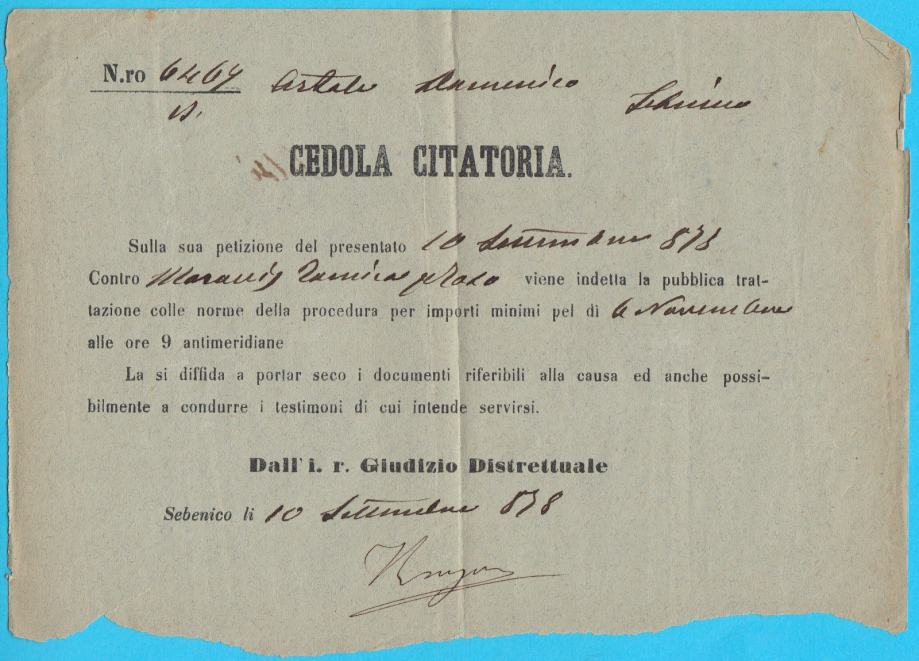 N.ro 6464 Domenico
CEDOLA CITATORIA.
Sulla sua petizione del presentato 10 Settembre 878
Contro viene indetta la pubblica trat-
tazione colle norme della procedura per importi minimi pel dì 6 Novembre
alle ore 9 antimeridiane
La si diffida a portar seco i documenti riferibili alla causa ed anche possi-
bilmente a condurre i testimoni di cui intende servirsi.
Dall' i. r. Giudizio Distrettuale
Sebenico li 10 Settembre 878